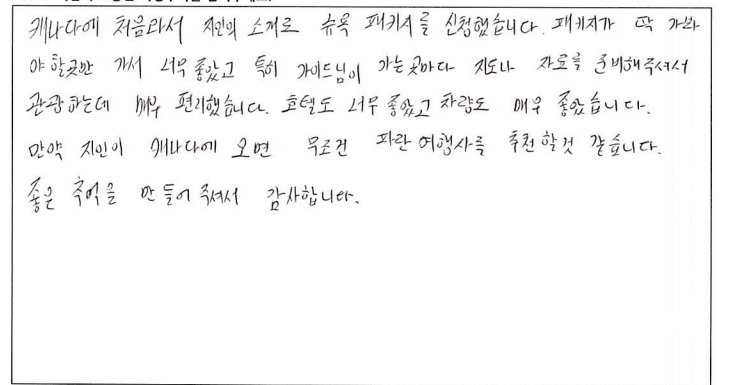 캐나다에 처음라서 지인의 소개로 뉴욕 패키지를 신청했습니다. 패키지가 딱 가봐
야 할곳만 가서 너무 좋았고 특히 가이드님이 가는곳마다 지도나 자료를 준비해주셔서
관광하는데 매우 편리했습니다. 호텔도 너무 좋았고 차량도 매우 좋았습니다.
만약 지인이 캐나다에 오면 무조건 파란여행사를 추천할것 같습니다.
좋은 추억을 만들어 주셔서 감사합니다.